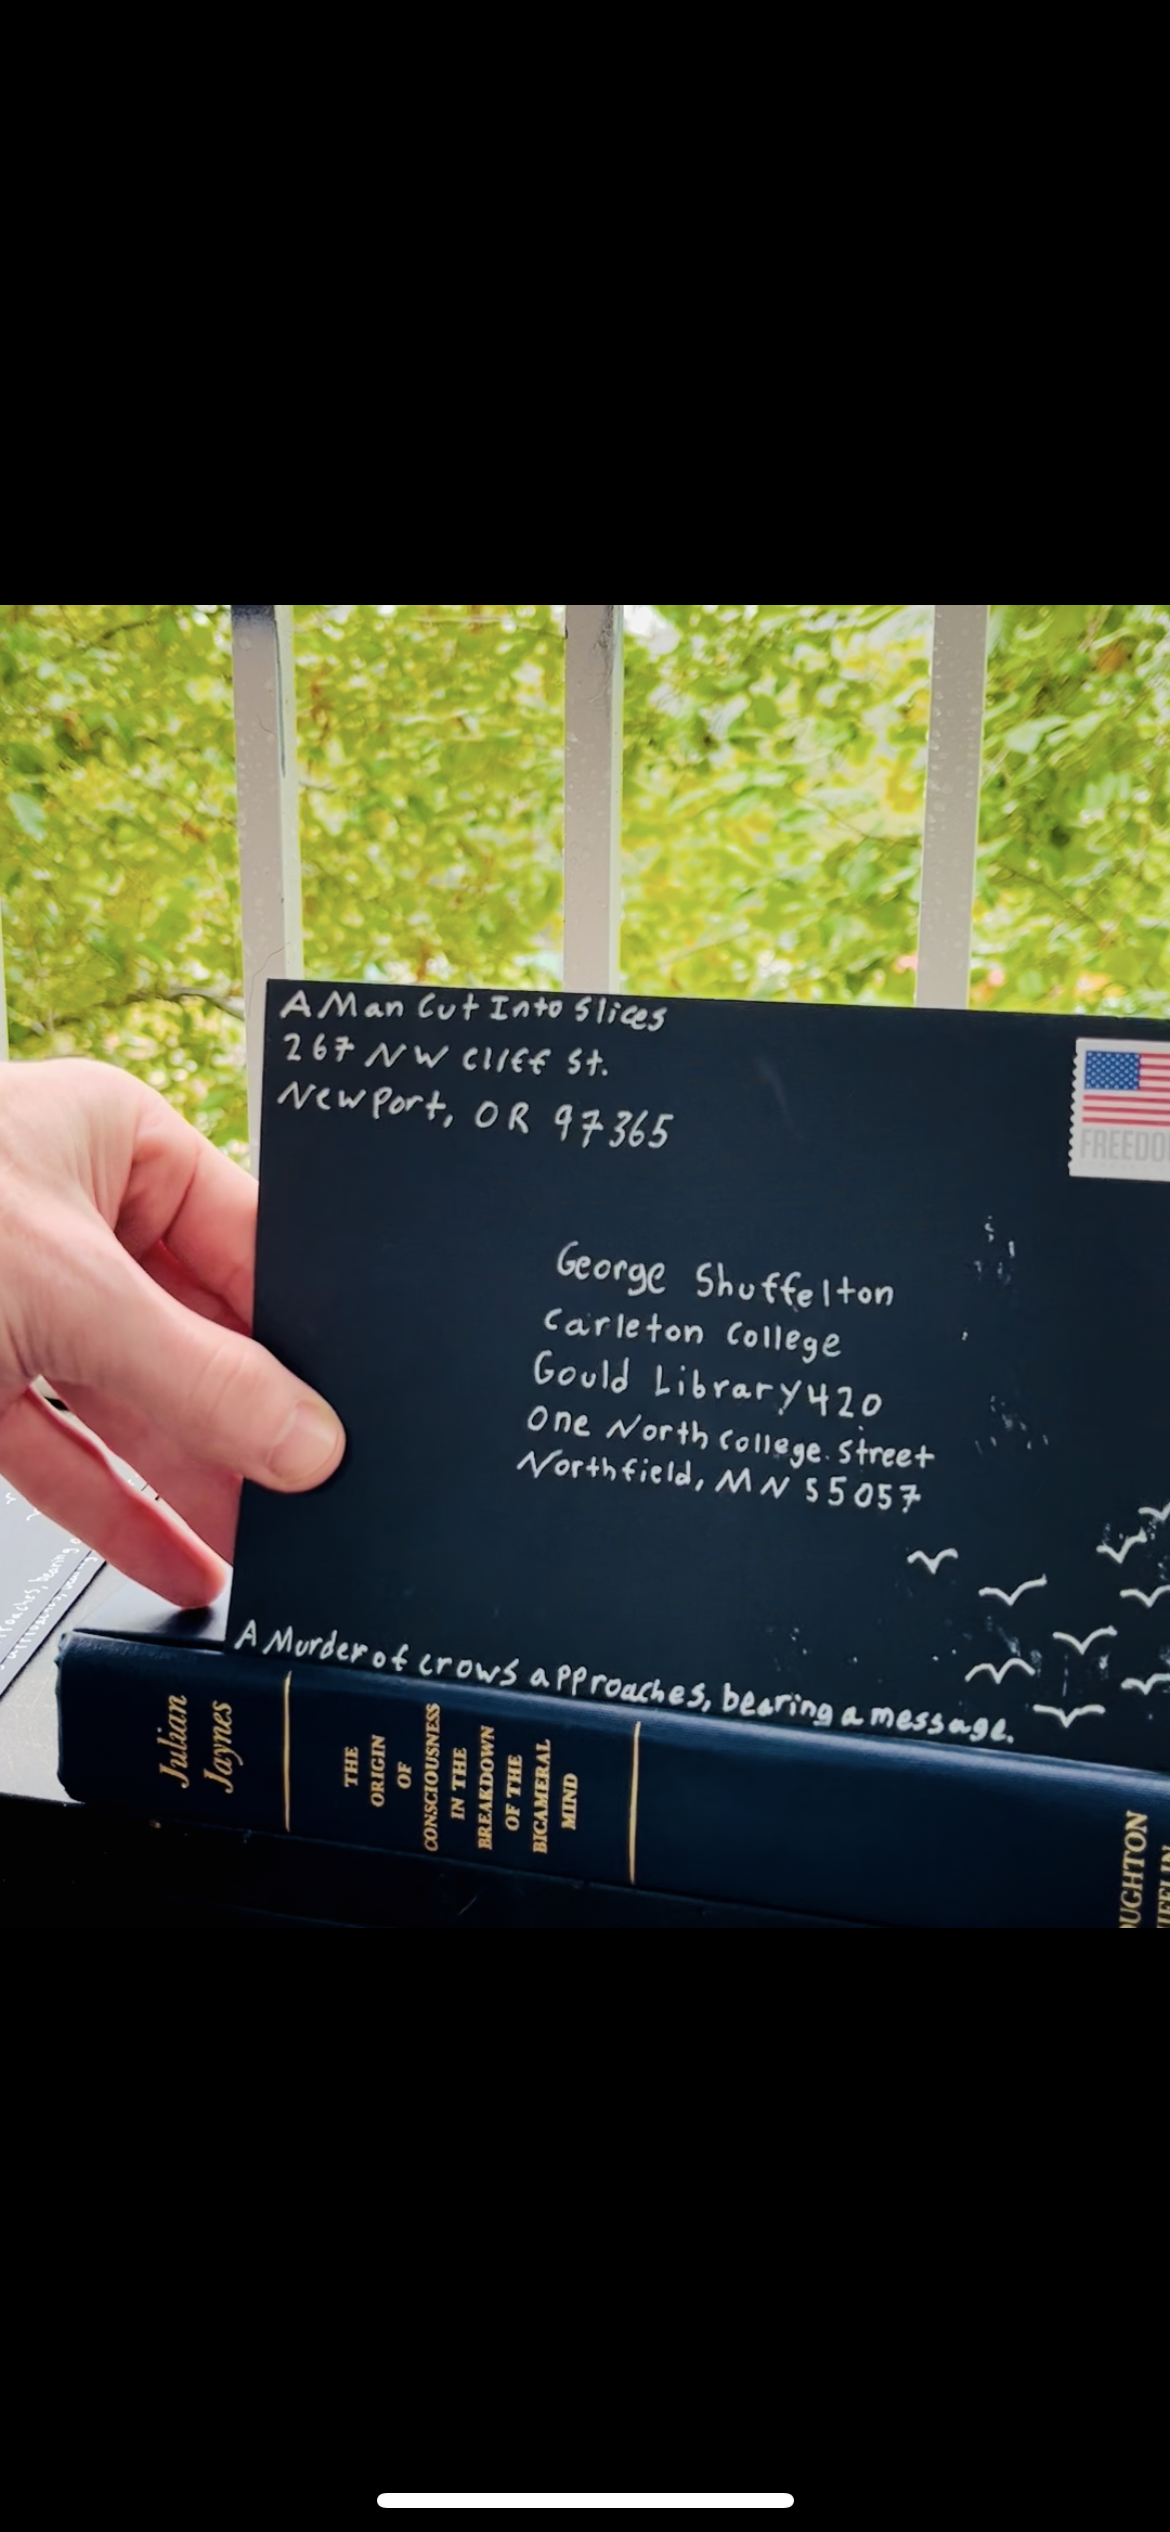 A Man Cut Into Slices
267 NW Cliff St.
Newport, OR 97365
FREEDO
George Shuffelton
Carleton College
Gould Library 420
One North College Street
Northfield, MN 55057
A Murder of crows approaches, bearing a message.
Julian
Jaynes
THE
ORIGIN
OF
CONSCIOUSNESS
IN THE
BREAKDOWN
OF THE
BICAMERAL
MIND
OUGHTON